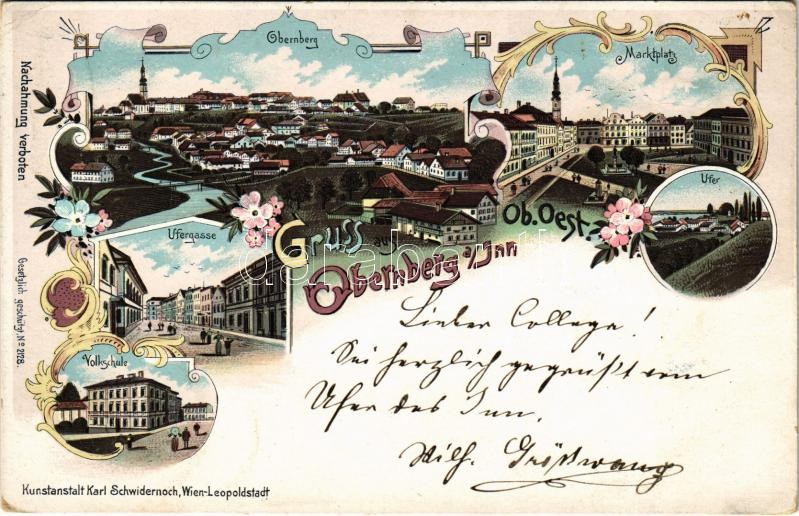 Obernberg
Marktplatz
Nachahmung verboten
Ufer
Ufergasse
Gruss aus
Ob. Oest.
Obernberg a/Inn
Gesetzlich geschützt, No 2128.
Volkschule
Lieber College!
Sei herzlich gegrüßt vom
Ufer des Inn.
Wilh. Größwang
Kunstanstalt Karl Schwidernoch, Wien-Leopoldstadt